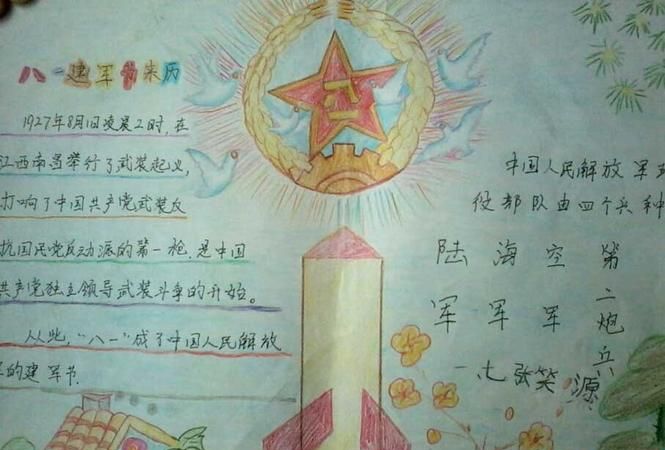 八一建军节来历
1927年8月1日凌晨2时,在
江西南昌举行了武装起义,
打响了中国共产党武装反
抗国民党反动派的第一枪.是中国
共产党独立领导武装斗争的开始。
从此,“八一”成了中国人民解放
军的建军节.
八一
中国人民解放军
役部队由四个兵种
陆军
海军
空军
第二炮兵
一.七 张笑源